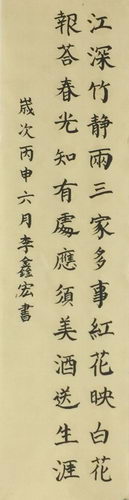 江深竹靜兩三家多事紅花映白花
報荅春光知有處應須美酒送生涯
歲次丙申六月李鑫宏書